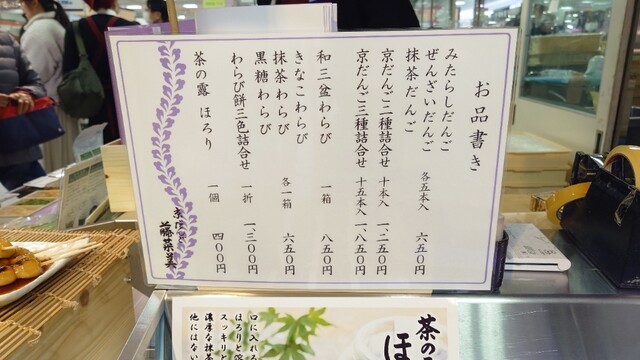 お品書き
みたらしだんご
ぜんざいだんご
抹茶だんご
各五本入 六五〇円
京だんご二種詰合せ 十本入 一、二五〇円
京だんご三種詰合せ 十五本入 一、八五〇円
和三盆わらび 一箱 八五〇円
きなこわらび
抹茶わらび
黒糖わらび
各一箱 六五〇円
わらび餅三色詰合せ 一折 一、三〇〇円
茶の露 ほろり 一個 四〇〇円
藤菜美
茶の
ほ
口に入れ
ほろりと
スッキリと
濃厚な抹茶
他にはない